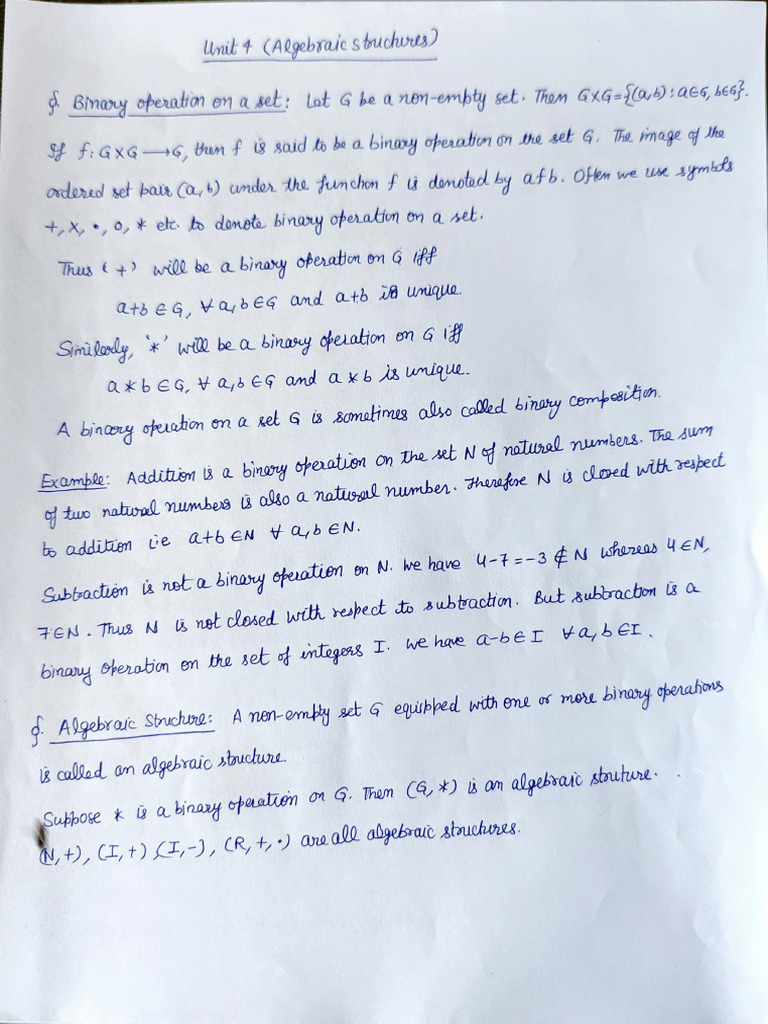 Unit 4 (Algebraic structures)
§. Binary operation on a set: Let G be a non-empty set. Then G×G={(a,b): a∈G, b∈G}.
If f: G×G ⟶G, then f is said to be a binary operation on the set G. The image of the
ordered set pair (a,b) under the function f is denoted by afb. Often we use symbols
+, ×, •, o, * etc. to denote binary operation on a set.
Thus '+' will be a binary operation on G iff
a+b ∈ G, ∀ a,b ∈ G and a+b is unique.
Similarly, '*' will be a binary operation on G iff
a * b ∈ G, ∀ a,b ∈ G and a * b is unique.
A binary operation on a set G is sometimes also called binary composition.
Example: Addition is a binary operation on the set N of natural numbers. The sum
of two natural numbers is also a natural number. Therefore N is closed with respect
to addition i.e a+b ∈N ∀ a,b ∈N.
Subtraction is not a binary operation on N. We have 4-7=-3 ∉ N whereas 4 ∈N,
7∈N. Thus N is not closed with respect to subtraction. But subtraction is a
binary operation on the set of integers I. We have a-b∈ I ∀ a,b ∈I.
§. Algebraic Structure: A non-empty set G equipped with one or more binary operations
is called an algebraic structure.
Suppose * is a binary operation on G. Then (G,*) is an algebraic struture.
(N,+), (I,+), (I,-), (R,+,•) are all algebraic structures.